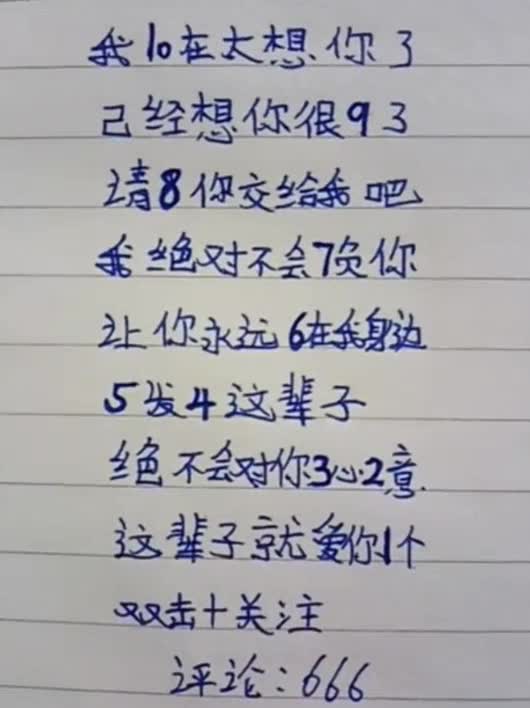 我10在太想你了
己经想你很93
请8你交给我吧
我绝对不会7负你
让你永远6在我身边
5发4这辈子
绝不会对你3心2意
这辈子就爱你1个
双击+关注
评论:666